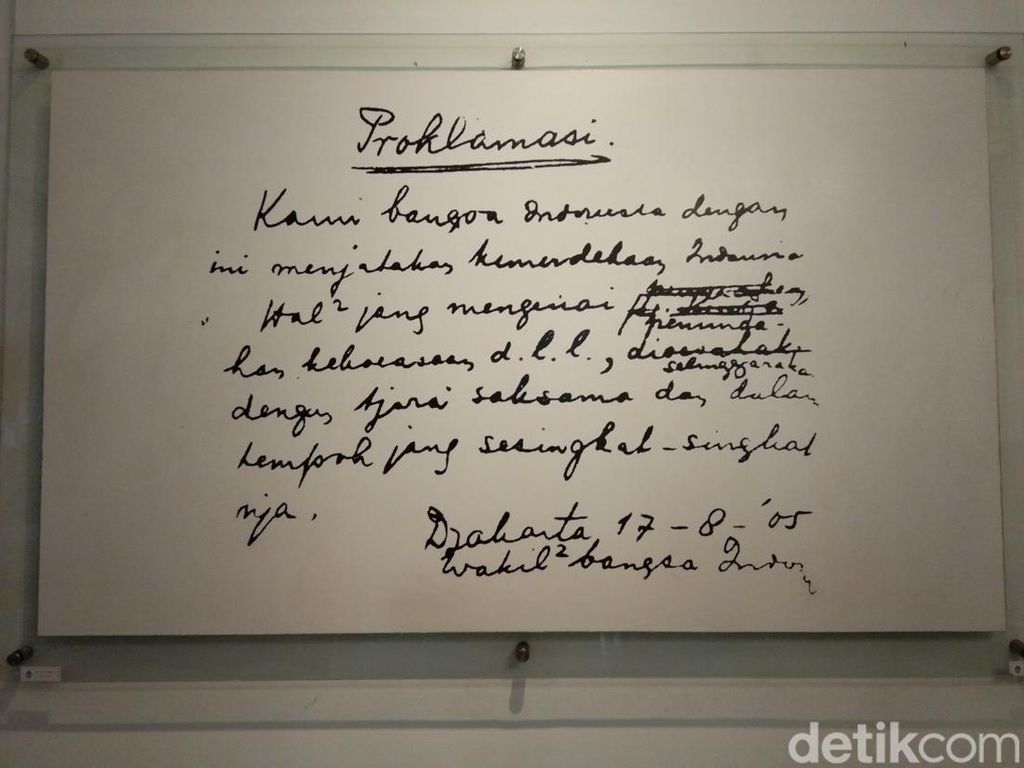 Proklamasi.
Kami bangsa Indonesia dengan
ini menjatakan kemerdekaan Indonesia
Hal² jang mengenai
peminda-
han kekoeasaan d.l.l.,
diselenggarakan
dengan tjara saksama dan dalam
tempoh jang sesingkat-singkat
nja.
Djakarta, 17-8-'05
Wakil² bangsa Indon
detikcom